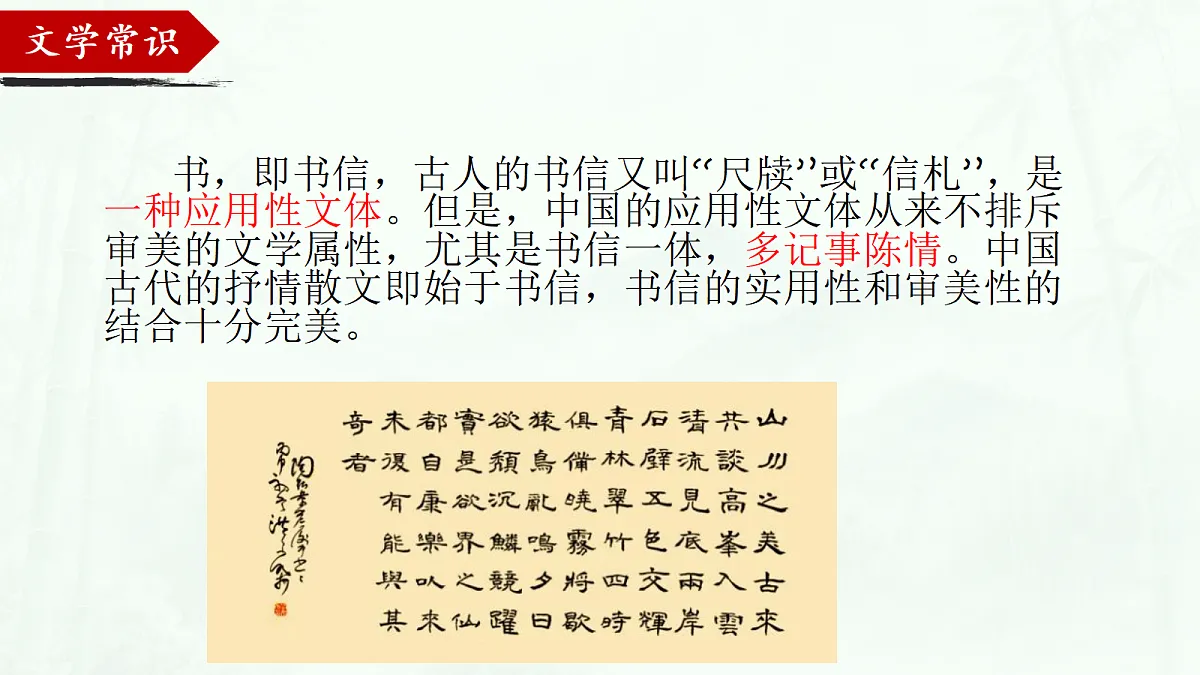 文学常识
书，即书信，古人的书信又叫“尺牍”或“信札”，是
一种应用性文体。但是，中国的应用性文体从来不排斥
审美的文学属性，尤其是书信一体，多记事陈情。中国
古代的抒情散文即始于书信，书信的实用性和审美性的
结合十分完美。
山川之美古來
共談高峯入雲
清流見底兩岸
石壁五色交輝
青林翠竹四時
俱備曉霧將歇
猿鳥亂鳴夕日
欲頹沉鱗競躍
實是欲界之仙
都自康樂以來
未復有能與其
奇者